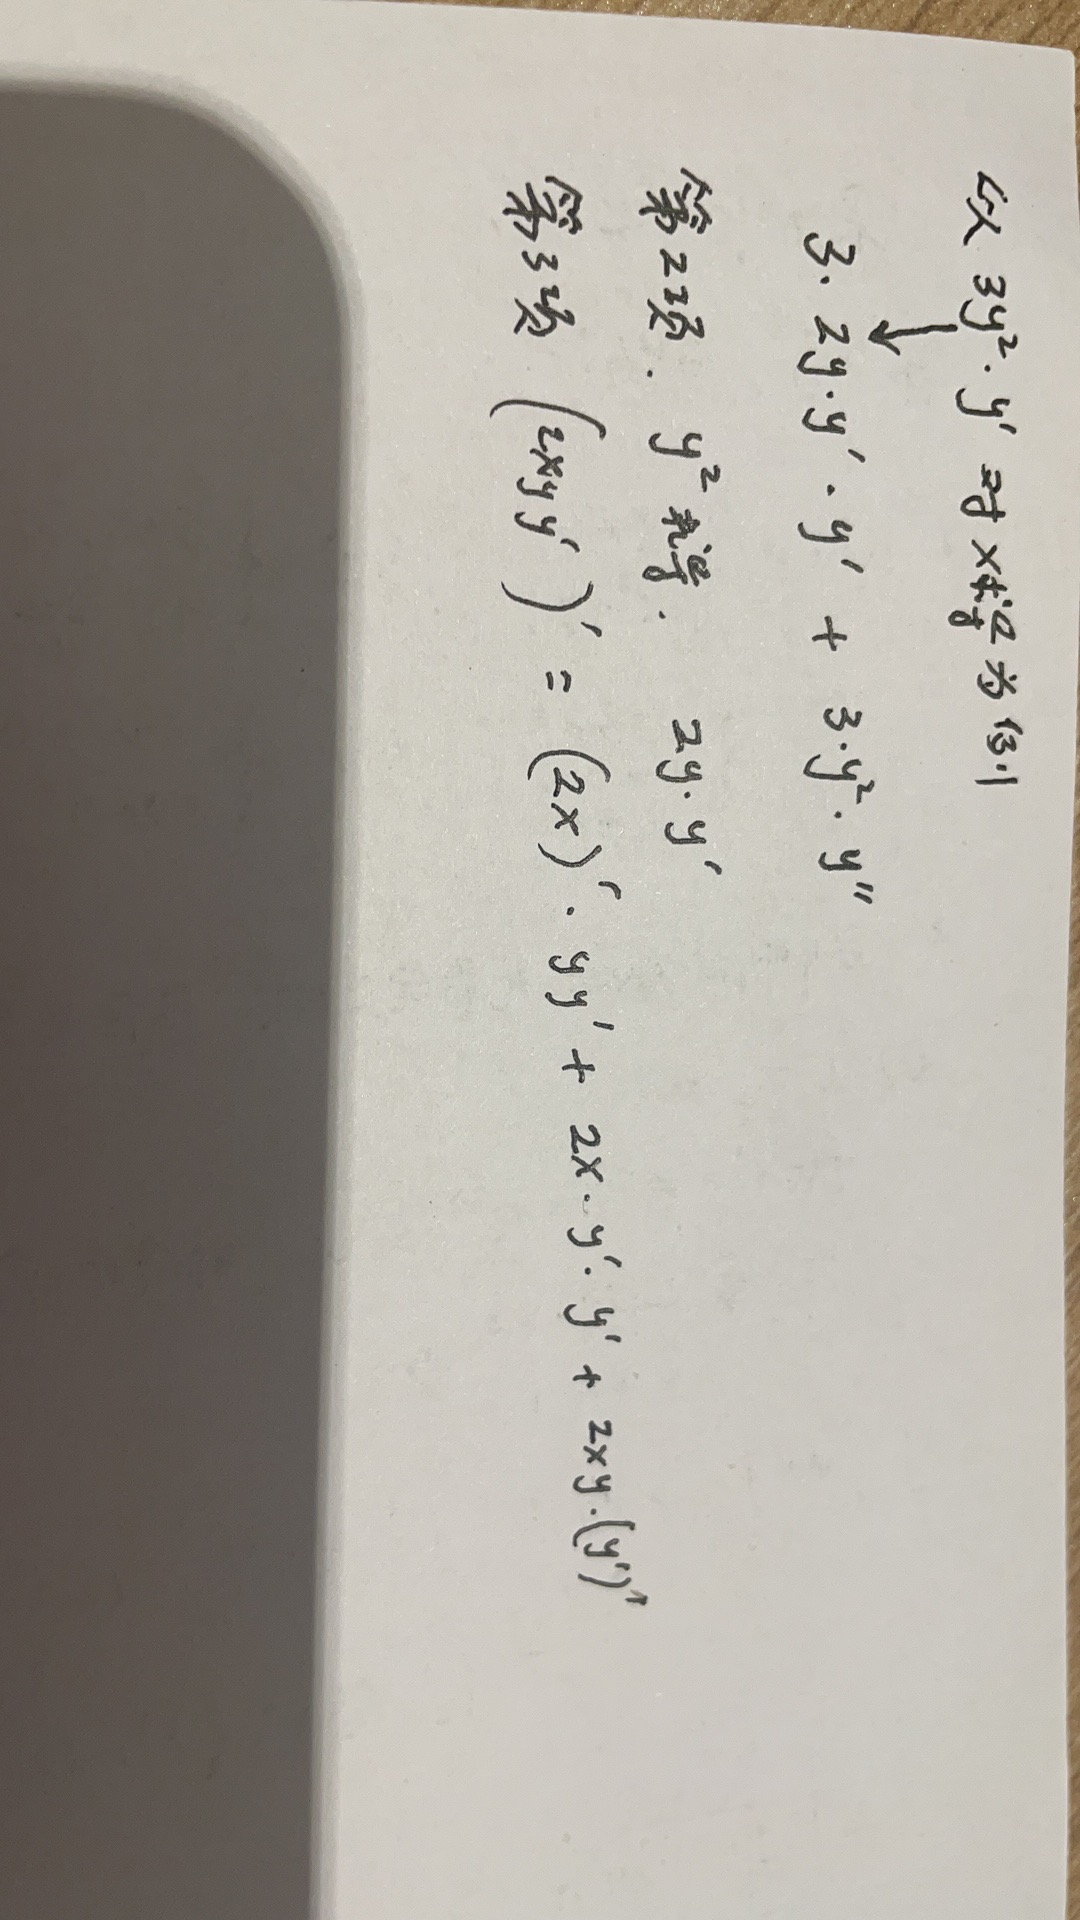 以 3y²·y' 对x求导为例.
↓
3·2y·y'·y' + 3·y²·y''
第2项. y² 求导. 2y·y'
第3项 (2xyy')' = (2x)'·yy' + 2x·y'·y' + 2xy·(y')'